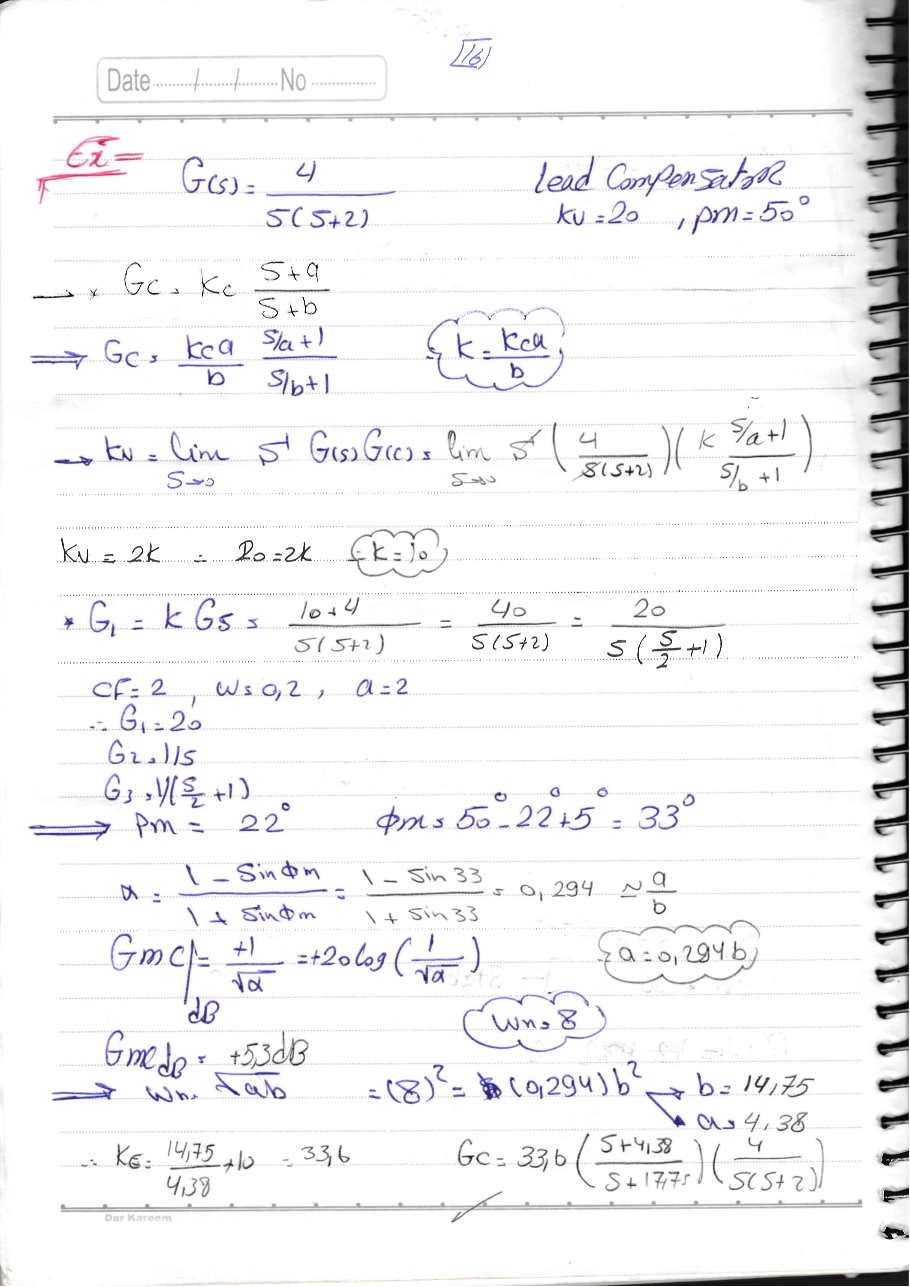 16
Date ........./........./.........No ...............
Ex =
G(s) = 4 / S(S+2)    lead Compensator
kv = 20 , pm = 50°
→ * Gc = Kc (S+a)/(S+b)
⇒ Gc = (kca/b) (S/a+1)/(S/b+1)    ∴ k = kca/b
→ kv = lim S→0 S G(s) G(c) = lim S→0 S (4 / S(S+2)) (k (S/a+1)/(S/b+1))
Kv = 2k ∴ 20 = 2k ∴ k = 10
* G1 = k Gs = 10*4 / S(S+2) = 40 / S(S+2) = 20 / S(S/2 +1)
CF = 2 , W = 0,2 , a = 2
∴ G1 = 20
G2 = 1/S
G3 = 1/(S/2 +1)
⇒ pm = 22°    ɸm = 50° - 22° + 5° = 33°
α = (1 - Sinɸm)/(1 + Sinɸm) = (1 - Sin 33)/(1 + Sin 33) = 0,294 ~ a/b
Gmc|dB = +1/√α = +20log(1/√α)    ∴ a = 0,294 b
Wn = 8
GmcdB = +5,3dB
⇒ Wn = √ab = (8)² = (0,294) b² → b = 14,75
a = 4,38
∴ Kc = 14,75/4,38 * 10 = 33,6    Gc = 33,6 ((S+4,38)/(S+17,75)) (4 / S(S+2))
Dar Kareem